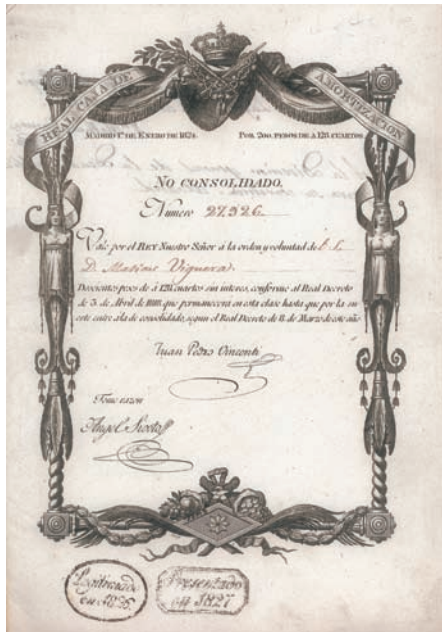 REAL CAXA DE AMORTIZACION
MADRID 1º DE ENERO DE 1824. POR 200 PESOS DE A 128 CUARTOS
NO CONSOLIDADO.
Numero 27.326.
Vale por el REY Nuestro Señor á la orden y voluntad de
D.
Doscientos pesos de á 128 cuartos sin interes, conforme al Real Decreto
de 3. de Abril de 1818, que permanecerá en esta clase hasta que por la su
erte entre á la de consolidado, segun el Real Decreto de 8. de Marzo de este año
Juan Pedro Vincenti
Tome razon
Angel
Legitimado
en 1825.
Presentado
en 1827